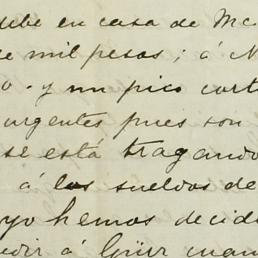 debe en casa de Mc
de mil pesos; á N
o. y un pico cort
urgentes pues son
se está tragando
á los sueldos de
yo hemos decid
edir á Güir cuan